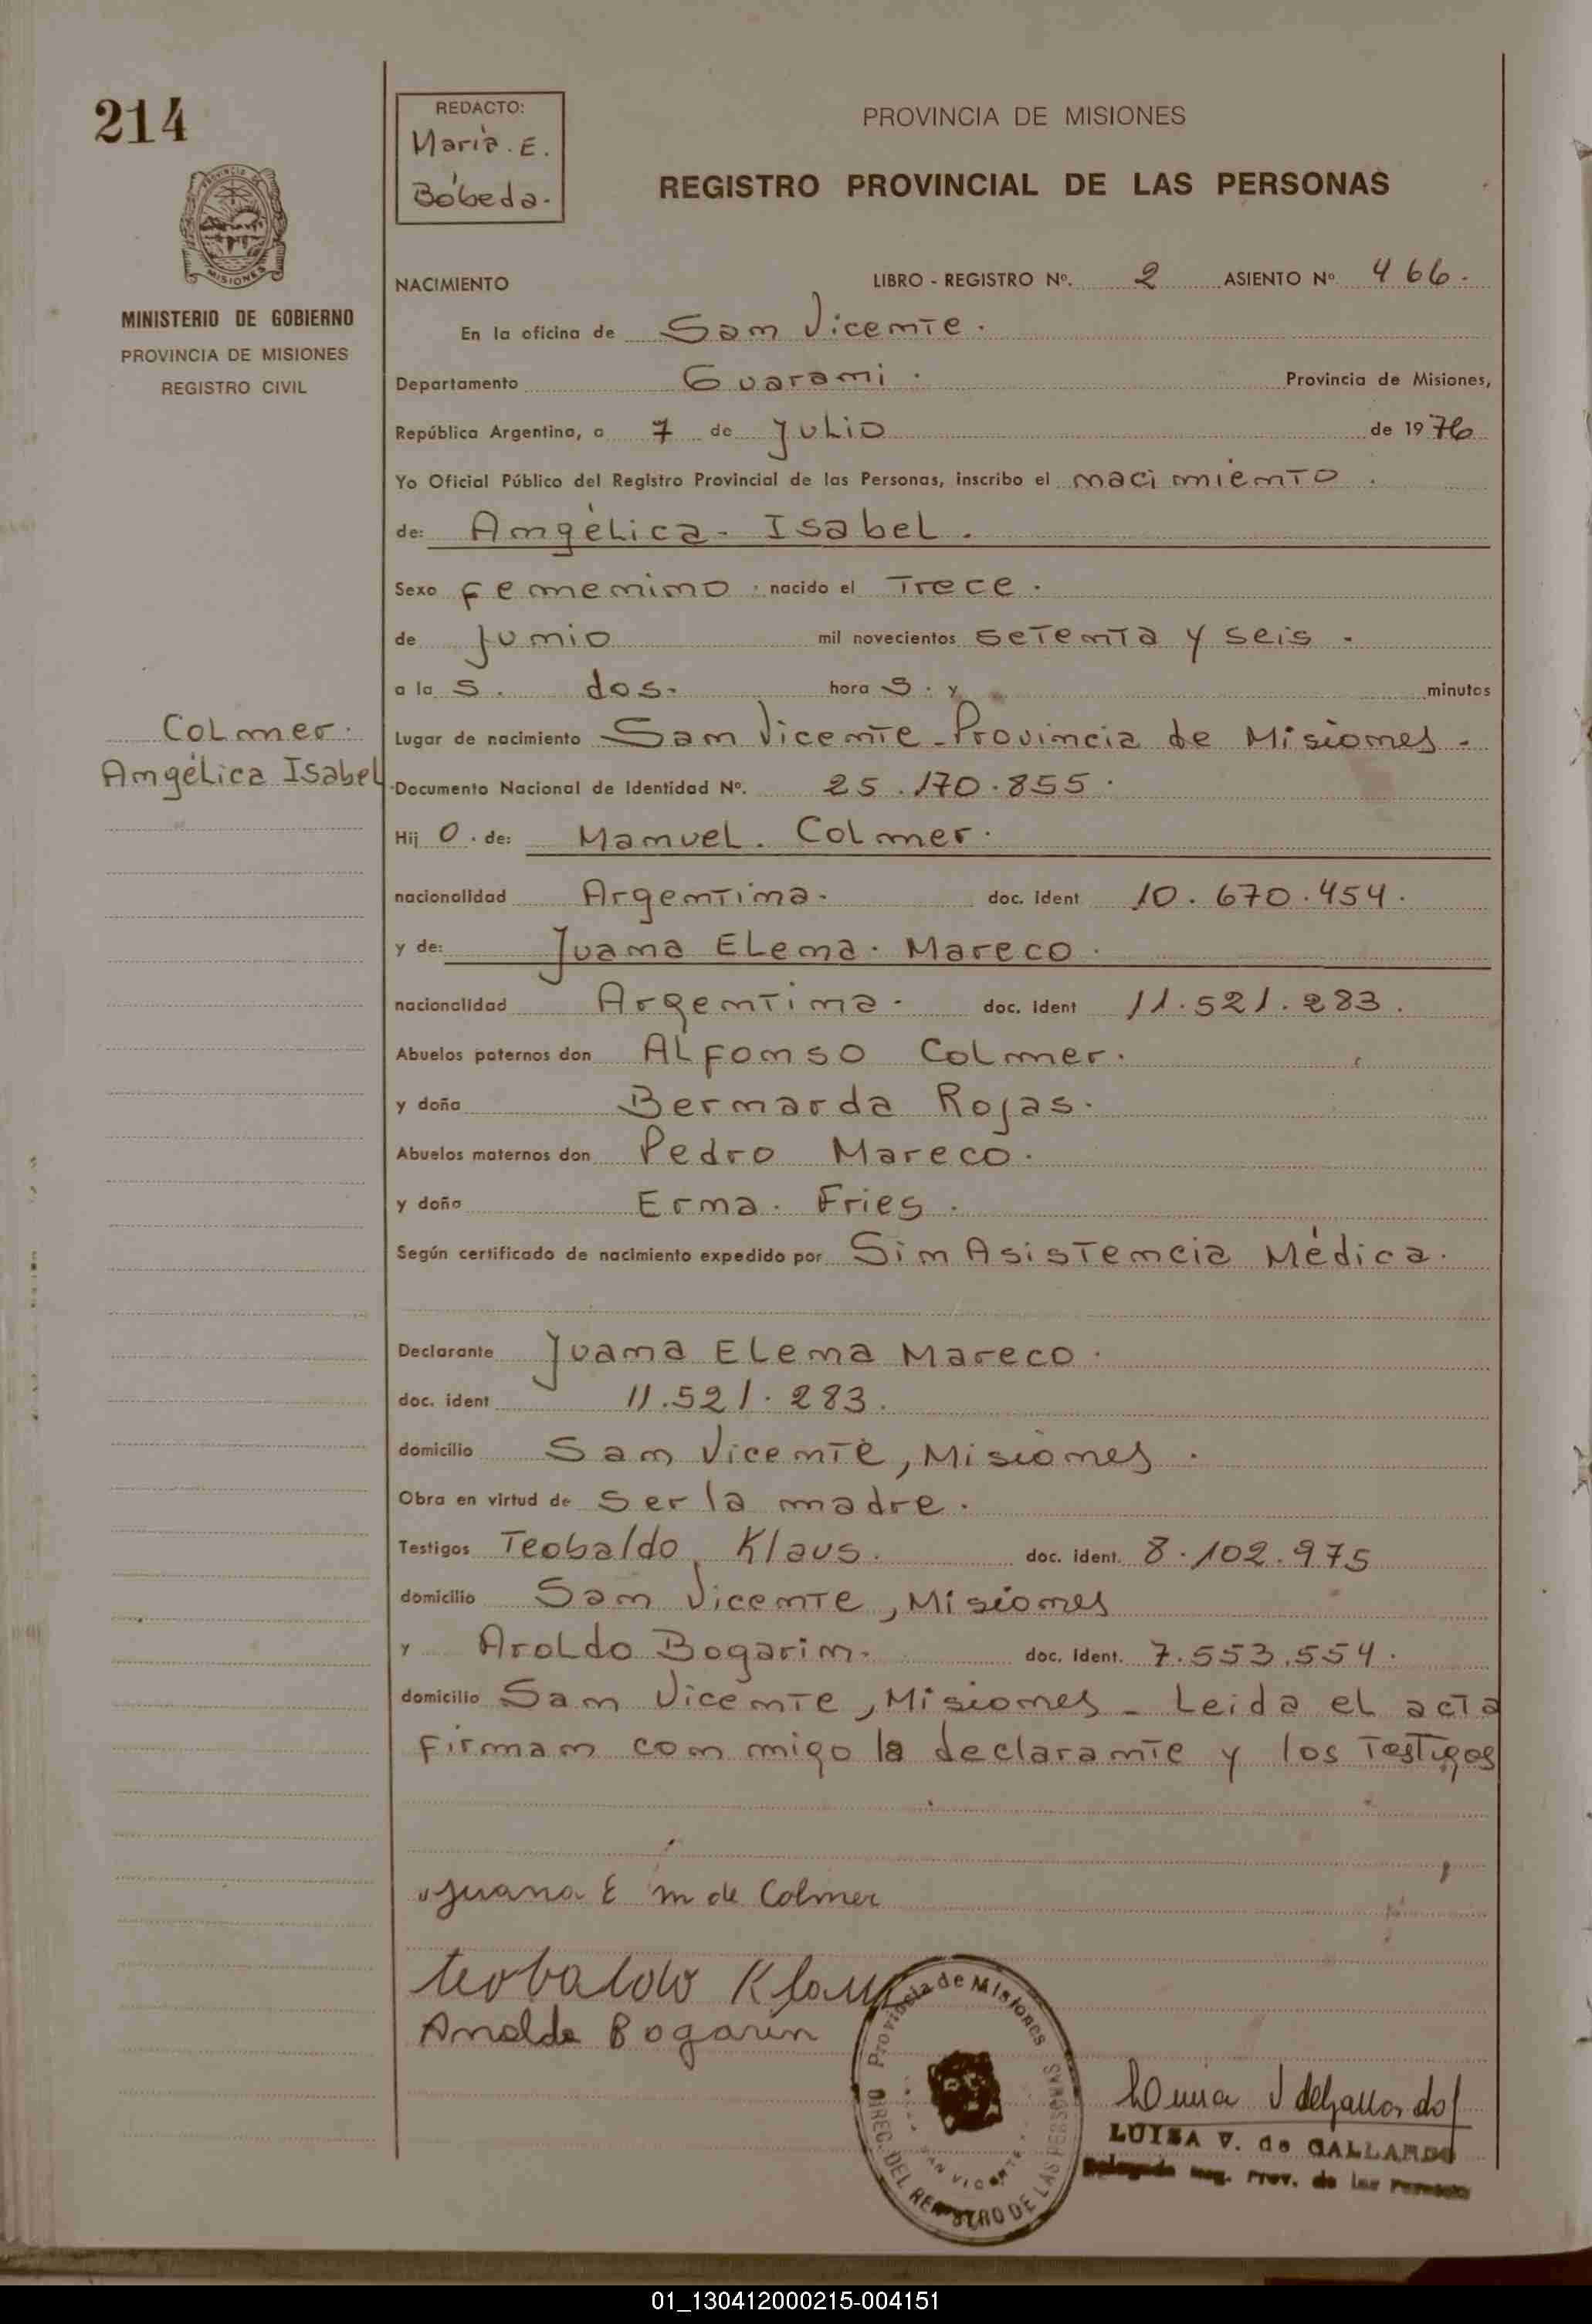 214
MINISTERIO DE GOBIERNO
PROVINCIA DE MISIONES
REGISTRO CIVIL
Colmer.
Angélica Isabel
REDACTO:
María. E.
Bóbeda.
PROVINCIA DE MISIONES
REGISTRO PROVINCIAL DE LAS PERSONAS
NACIMIENTO LIBRO - REGISTRO Nº. 2 ASIENTO Nº 466.
En la oficina de San Vicente.
Departamento Guarani. Provincia de Misiones,
República Argentina, a 7 de Julio de 1976
Yo Oficial Público del Registro Provincial de las Personas, inscribo el nacimiento.
de: Angélica Isabel.
Sexo femenino. nacido el Trece.
de junio mil novecientos setenta y seis.
a la s. dos. hora s. y minutos
Lugar de nacimiento San Vicente - Provincia de Misiones.
Documento Nacional de Identidad Nº. 25.170.855.
Hij o. de: Manuel. Colmer.
nacionalidad Argentina. doc. ident 10.670.454.
y de: Juana Elena. Mareco.
nacionalidad Argentina. doc. ident 11.521.283.
Abuelos paternos don Alfonso Colmer.
y doña Bernarda Rojas.
Abuelos maternos don Pedro Mareco.
y doña Erma. Fries.
Según certificado de nacimiento expedido por Sin Asistencia Médica.
Declarante Juana Elena Mareco.
doc. ident 11.521.283.
domicilio San Vicente, Misiones.
Obra en virtud de ser la madre.
Testigos Teobaldo Klaus. doc. ident. 8.102.975
domicilio San Vicente, Misiones
y Aroldo Bogarin. doc. ident. 7.553.554.
domicilio San Vicente, Misiones - Leida el acta
firman con migo la declarante y los Testigos
Juana E m de Colmer
teobaldo Klaus
Aroldo Bogarin
Provincia de Misiones
SAN VICENTE
DIREC. DEL REGISTRO DE LAS PERSONAS
LUISA V. de GALLARDO
Delegada Reg. Prov. de las Personas
01_130412000215-004151